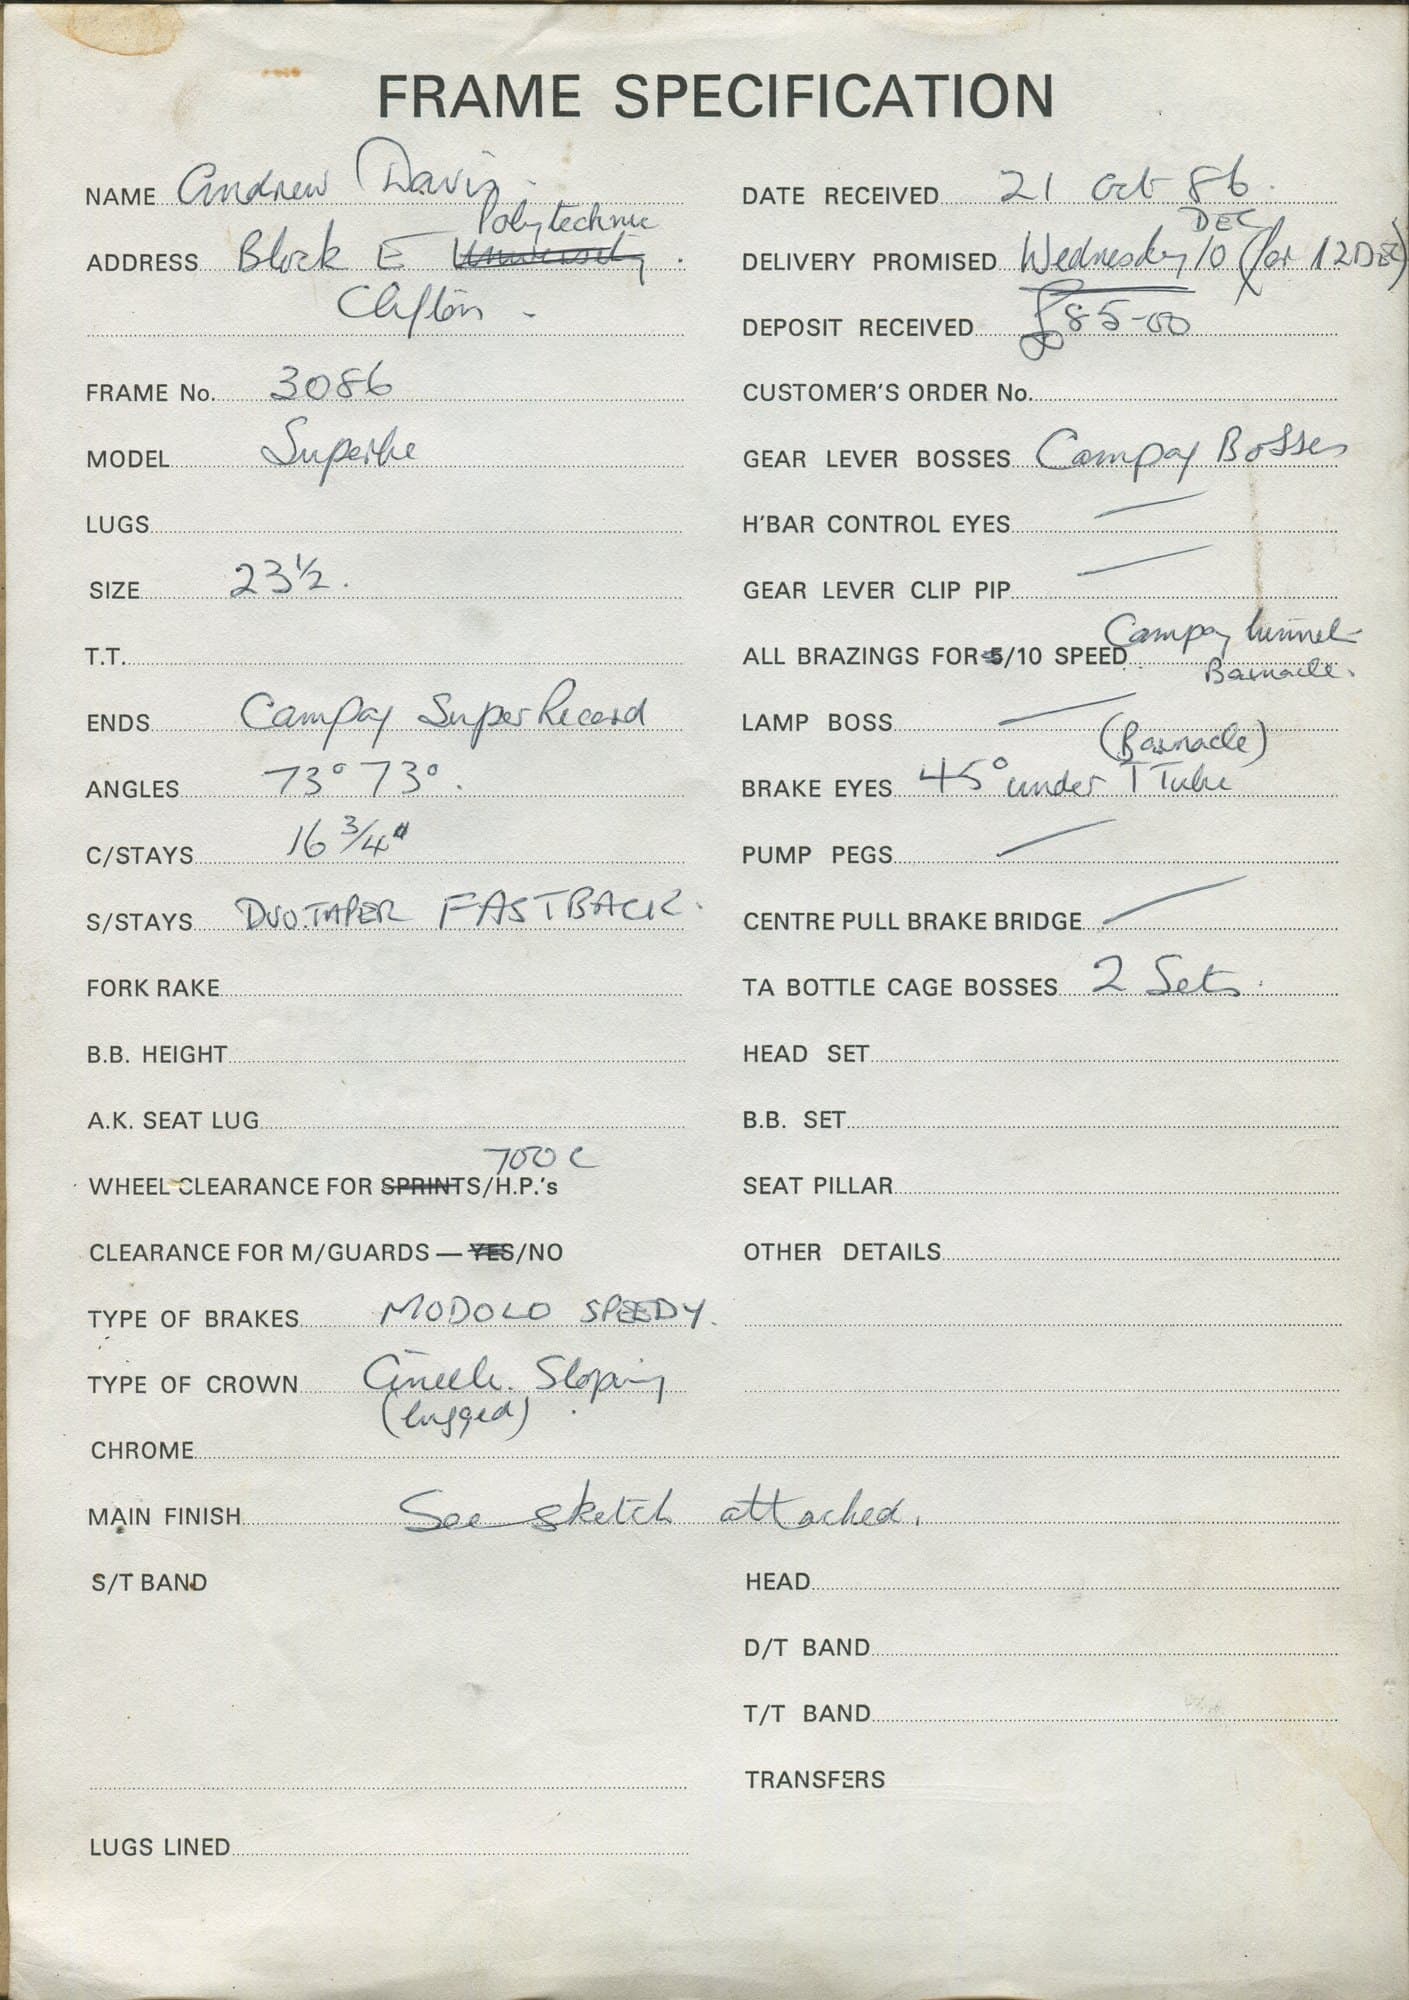 FRAME SPECIFICATION
NAME Andrew Davis.
ADDRESS Block E University Polytechnic.
Clifton.
FRAME No. 3086
MODEL Superbe
LUGS
SIZE 23½.
T.T.
ENDS Campag Super Record
ANGLES 73° 73°.
C/STAYS 16 3/4"
S/STAYS DUO.TAPER FASTBACK.
FORK RAKE
B.B. HEIGHT
A.K. SEAT LUG
700 C
WHEEL CLEARANCE FOR SPRINTS/H.P.'s
CLEARANCE FOR M/GUARDS — YES/NO
TYPE OF BRAKES MODOLO SPEEDY.
TYPE OF CROWN Cinelli. Sloping
(lugged).
CHROME
MAIN FINISH See sketch attached.
S/T BAND
LUGS LINED
DATE RECEIVED 21 Oct 86.
DELIVERY PROMISED Wednesday 10 DEC (for 12 DEC)
DEPOSIT RECEIVED £85-00
CUSTOMER'S ORDER No.
GEAR LEVER BOSSES Campag Bosses
H'BAR CONTROL EYES —
GEAR LEVER CLIP PIP —
ALL BRAZINGS FOR 5/10 SPEED Campag tunnel
Barnacle.
LAMP BOSS —
(Barnacle)
BRAKE EYES 45° under T Tube
PUMP PEGS —
CENTRE PULL BRAKE BRIDGE —
TA BOTTLE CAGE BOSSES 2 Sets.
HEAD SET
B.B. SET
SEAT PILLAR
OTHER DETAILS
HEAD
D/T BAND
T/T BAND
TRANSFERS